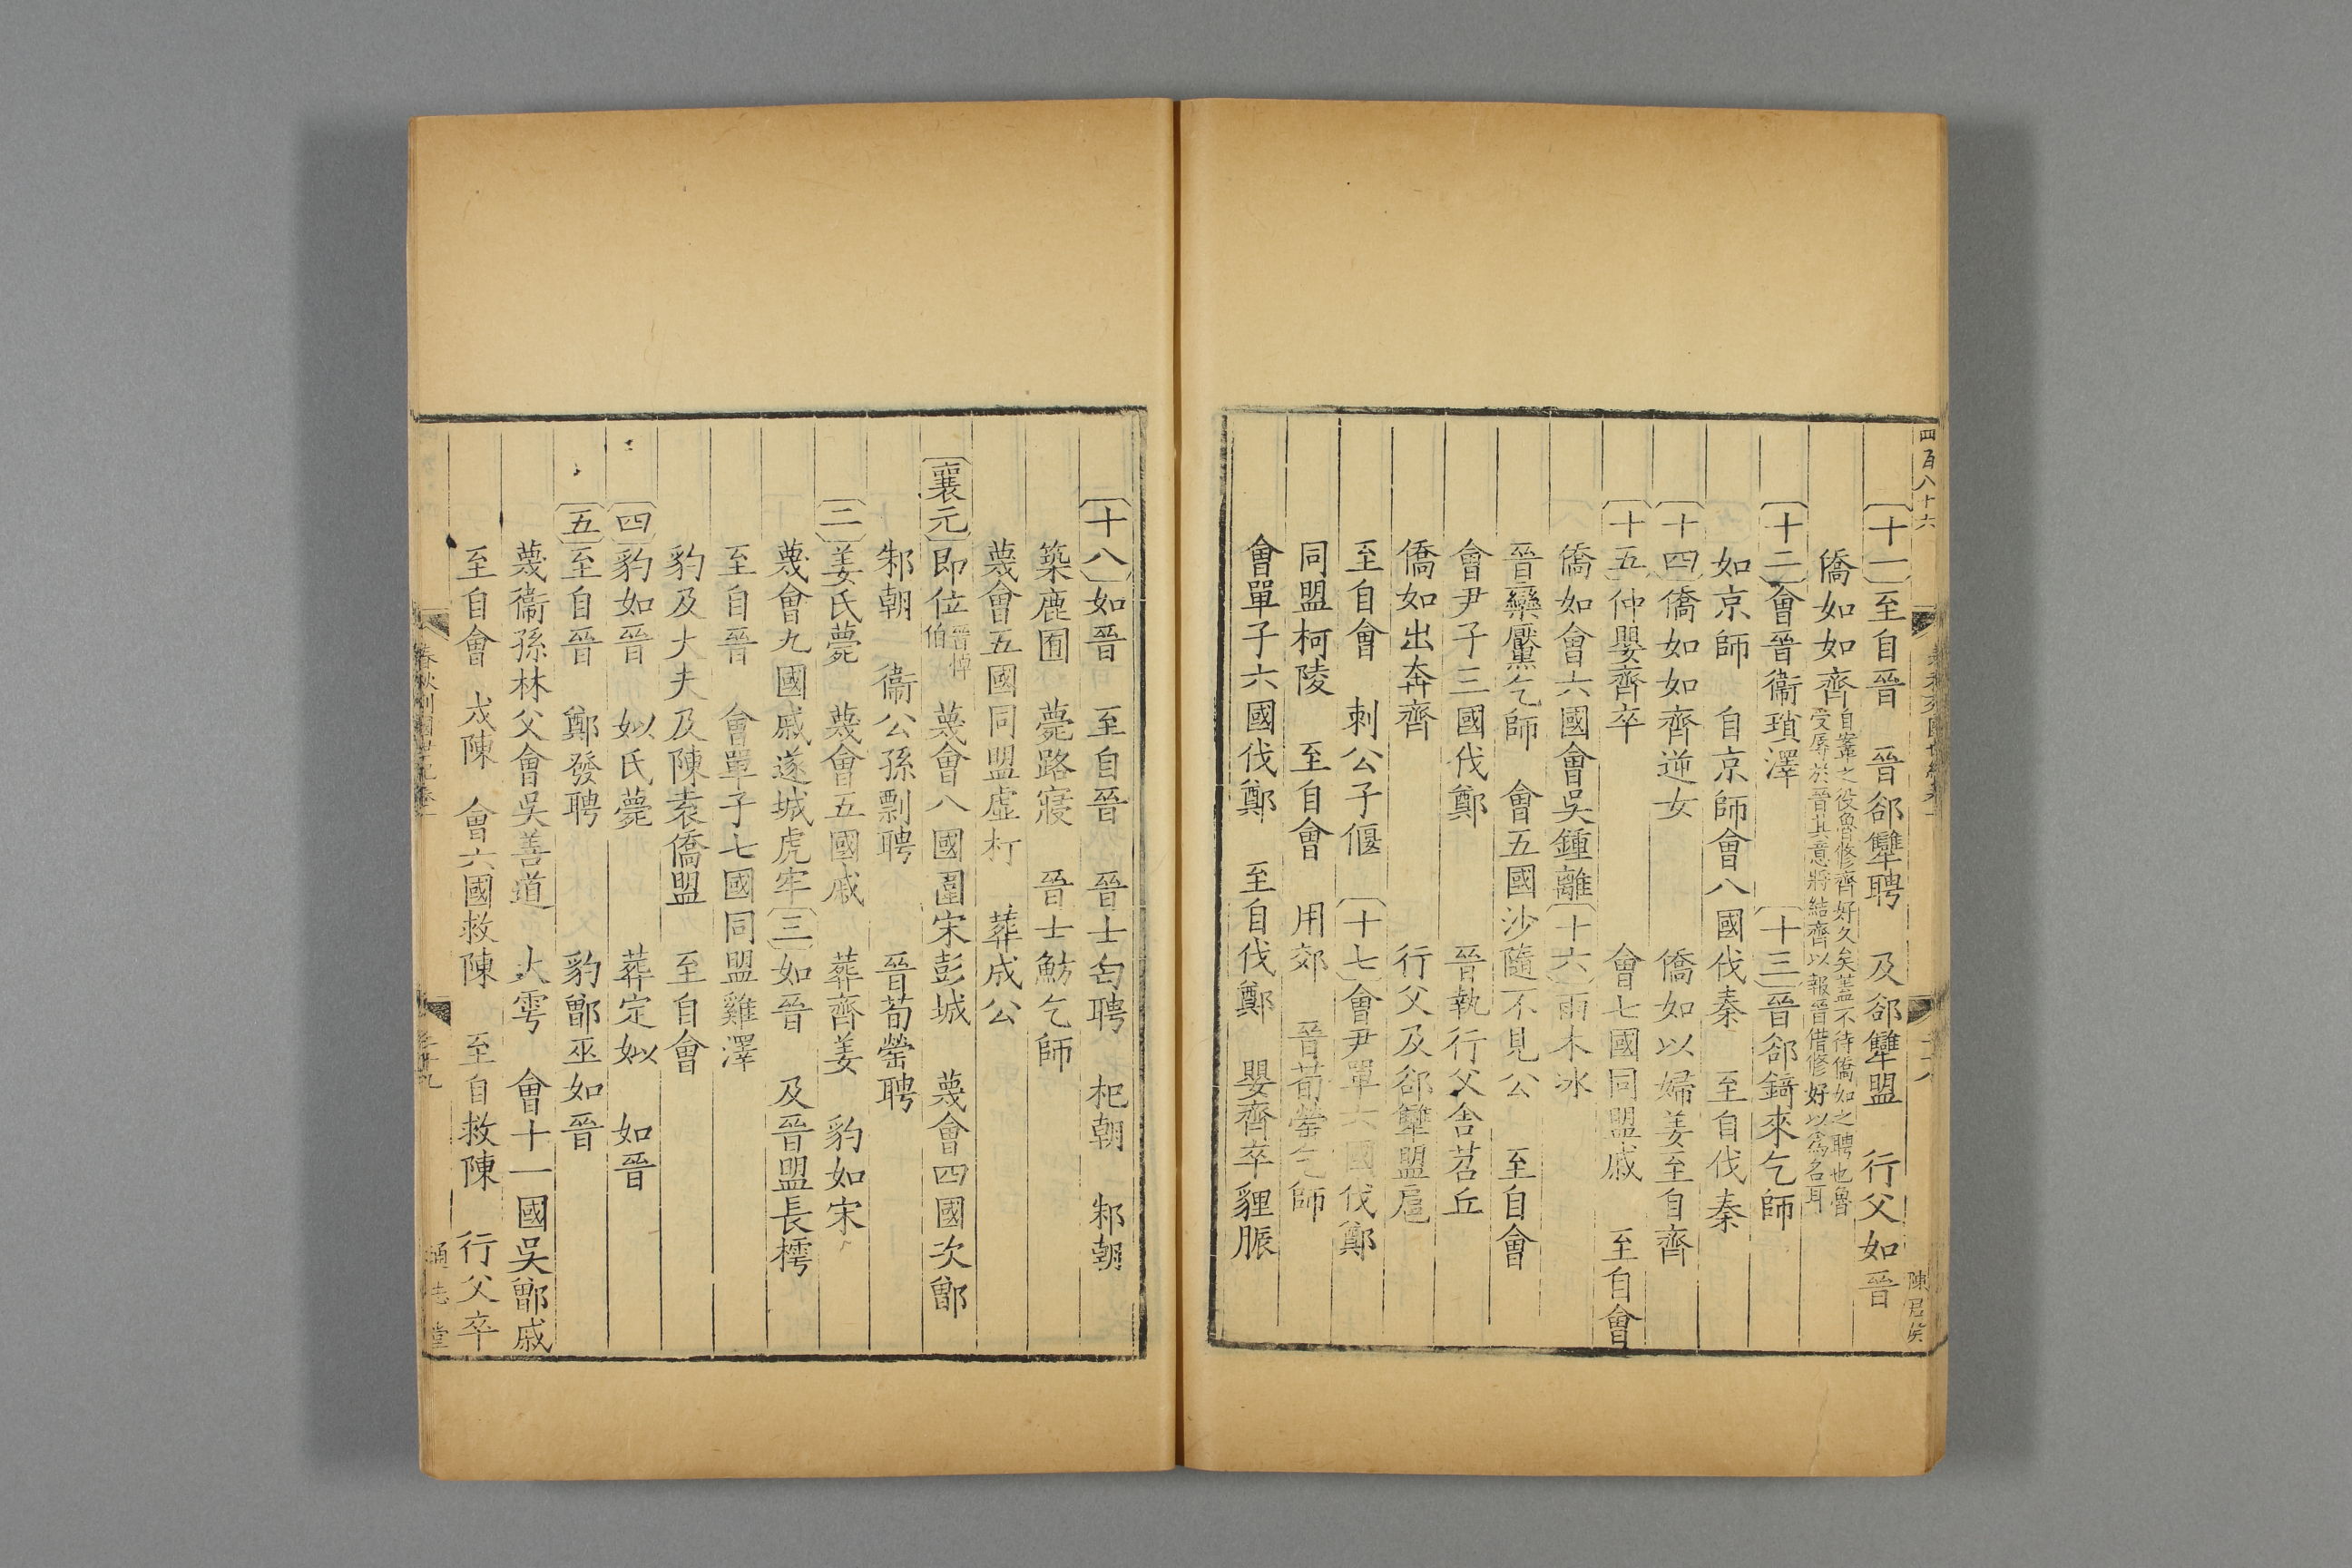 四百八十六
陳君矣
十一至自晉 晉郤犫聘 及郤犫盟 行父如晉
僑如如齊自鞌之役魯修齊好久矣葢不待僑如之聘也魯
受辱於晉其意將結齊以報晉借修好以爲名耳
十二會晉衞瑣澤 十三晉郤錡來乞師
如京師 自京師會八國伐秦 至自伐秦
十四僑如如齊逆女 僑如以婦姜至自齊
十五仲嬰齊卒 會七國同盟戚 至自會
僑如會六國會吳鍾離 十六雨木冰
晉欒黶乞師 會五國沙隨不見公 至自會
會尹子三國伐鄭 晉執行父舎苕丘
僑如出奔齊 行父及郤犫盟扈
至自會 刺公子偃 十七會尹單六國伐鄭
同盟柯陵 至自會 用郊 晉荀罃乞師
會單子六國伐鄭 至自伐鄭 嬰齊卒貍脤
十八如晉 至自晉 晉士匄聘 杞朝 邾朝
築鹿囿 薨路寢 晉士魴乞師
蔑會五國同盟虛朾 葬成公
襄元即位晉悼
伯 蔑會八國圍宋彭城 蔑會四國次鄫
邾朝 衞公孫剽聘 晉荀罃聘
二姜氏薨 蔑會五國戚 葬齊姜 豹如宋
蔑會九國戚遂城虎牢 三如晉 及晉盟長樗
至自晉 會單子七國同盟雞澤
豹及大夫及陳袁僑盟 至自會
四豹如晉 姒氏薨 葬定姒 如晉
五至自晉 鄭發聘 豹鄫巫如晉
蔑衞孫林父會吳善道 大雩 會十一國吳鄫戚
至自會 戍陳 會六國救陳 至自救陳 行父卒
通志堂